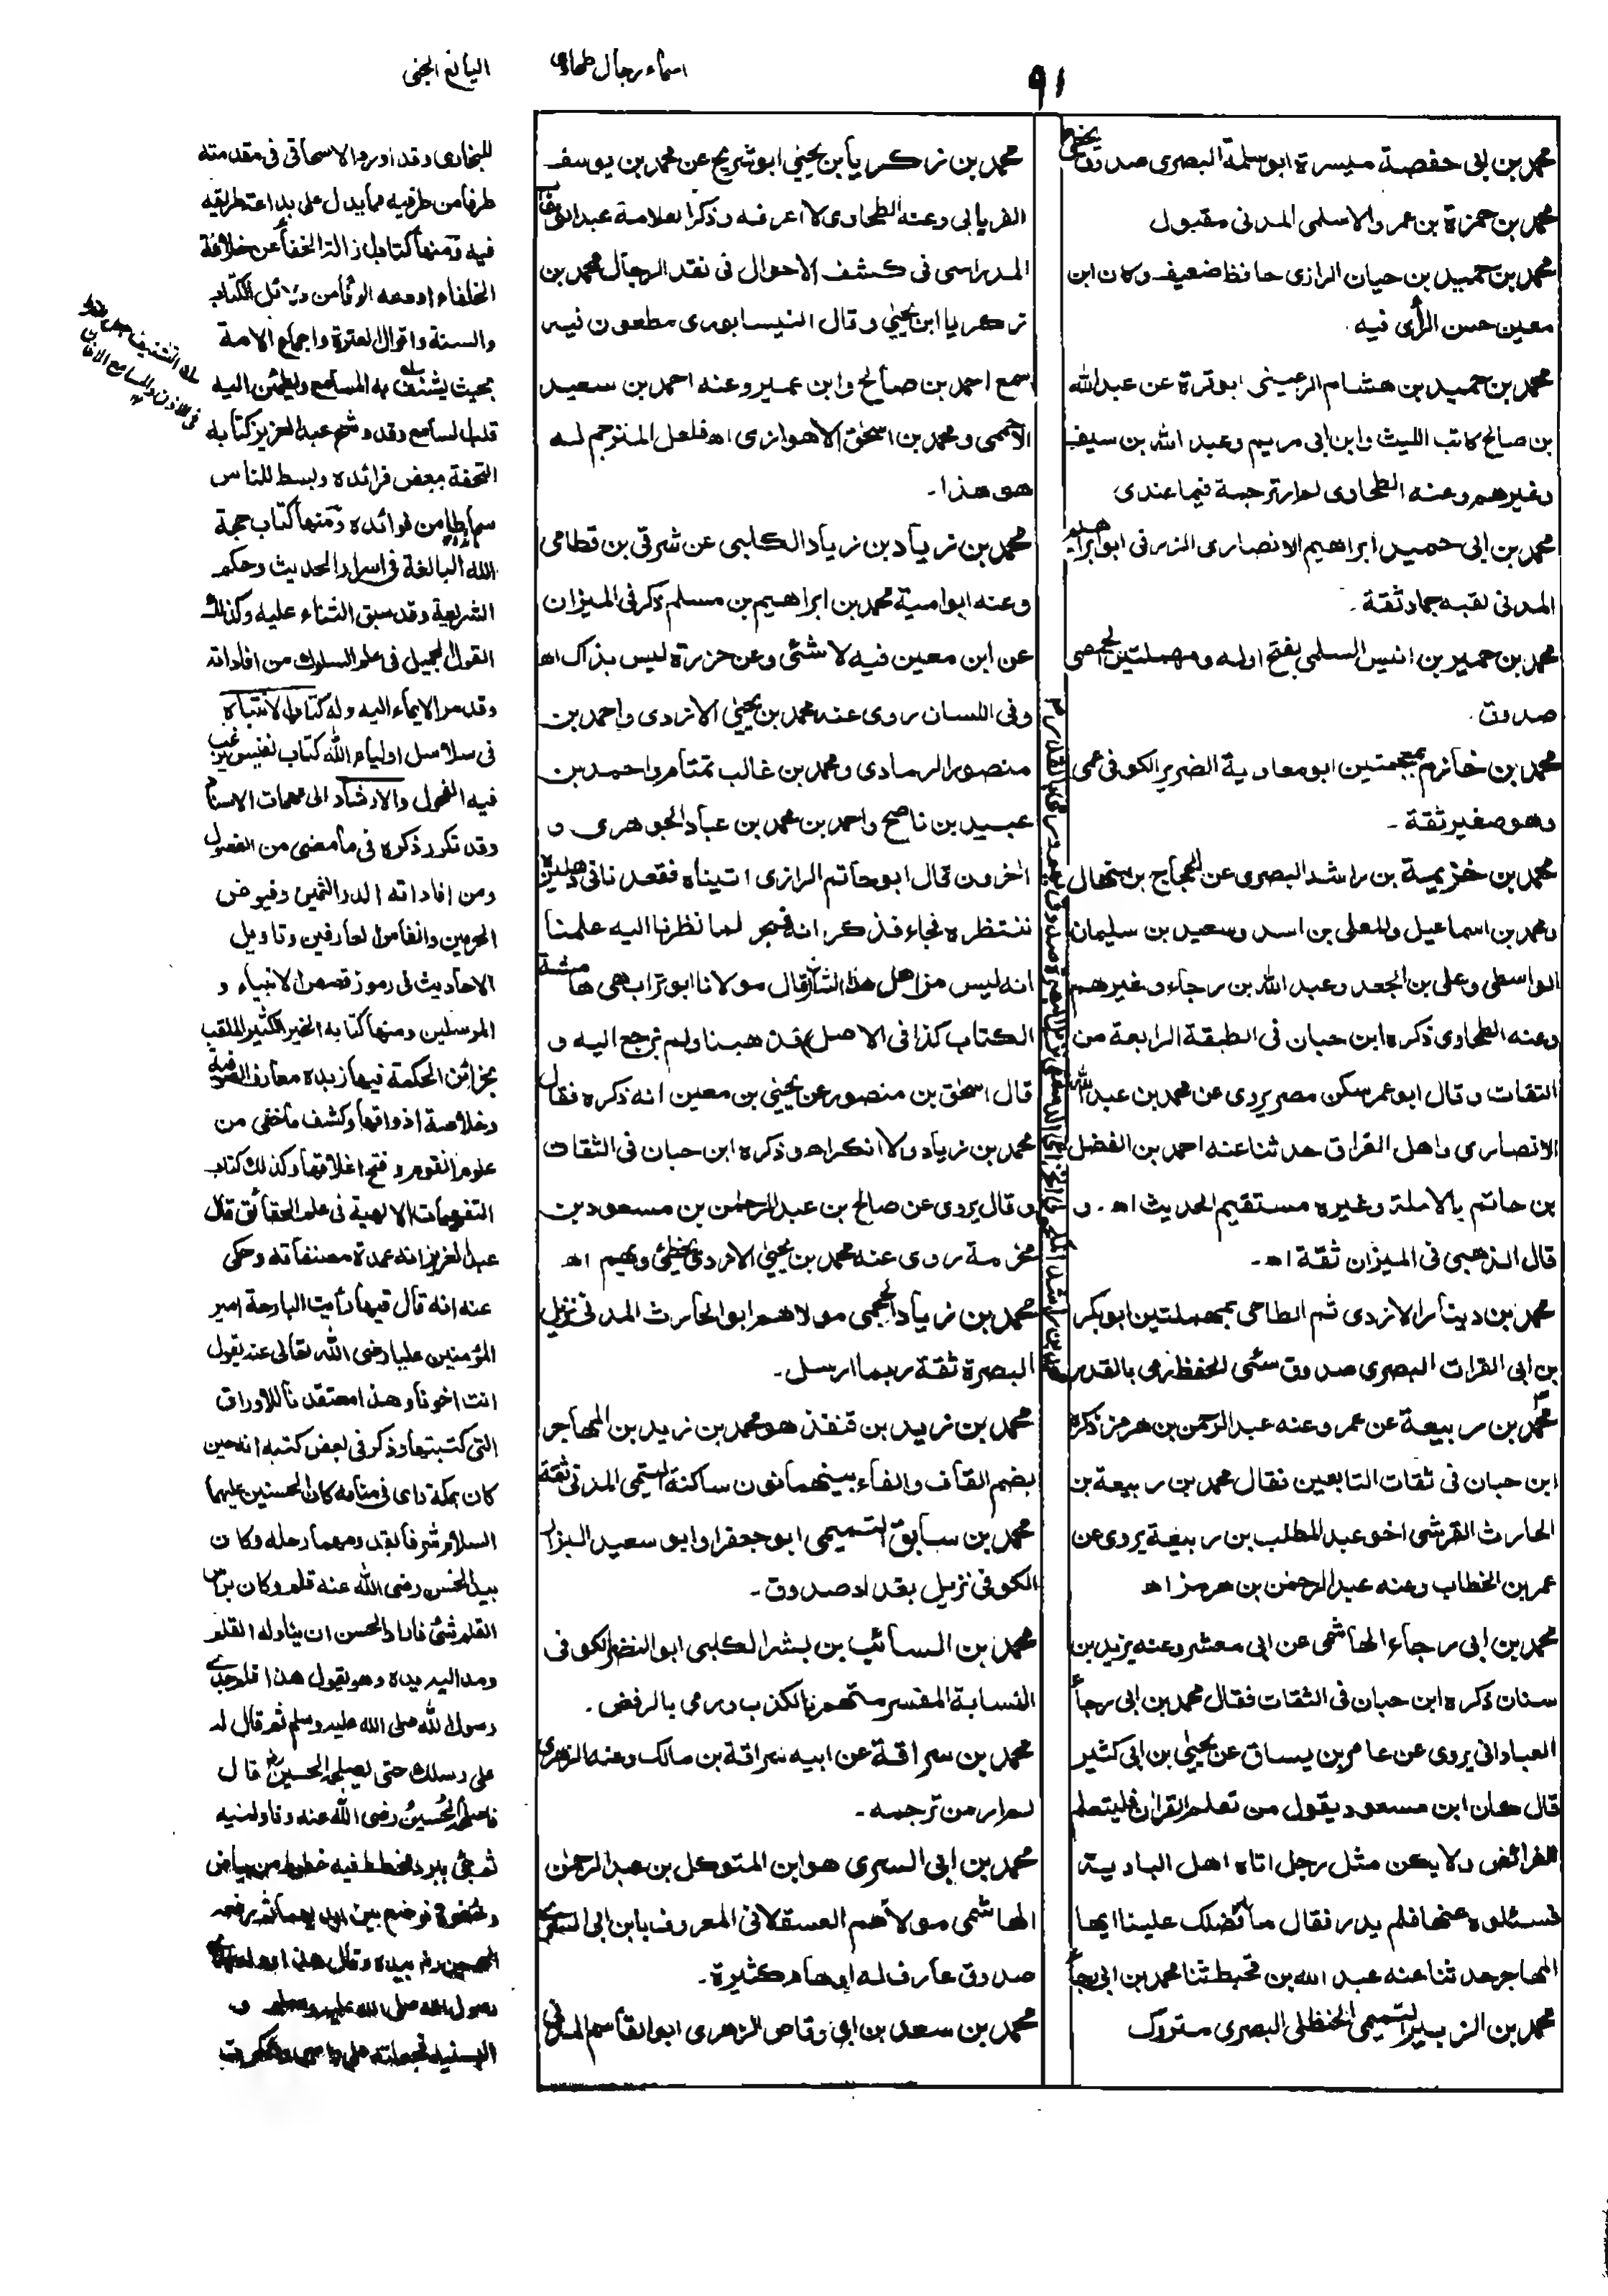 ٩١
اسماء رجال طحاوي
اليانع الجنى
محمد بن ابى حفصة ميسرة ابو سلمة البصرى صدوق يخطئ
محمد بن حمزة بن عمرو الاسلمى المدنى مقبول
محمد بن حميد بن حيان الرازى حافظ ضعيف وكان ابن
معين حسن الرأى فيه .
محمد بن حميد بن هشام الرعينى ابو قرة عن عبد الله
بن صالح كاتب الليث وابن ابى مريم وعبد الله بن سيف
وغيرهم وعنه الطحاوى لم ار ترجمة فيما عندى
محمد بن ابى حميد ابراهيم الانصارى الزرقى ابو ابراهيم
المدنى لقبه حماد ثقة ۔
محمد بن حمير بن انيس السلمى بفتح اوله ومهملتين الحمصى
صدوق .
محمد بن خازم بمعجمتين ابو معاوية الضرير الكوفى عمى
وهو صغير ثقة ۔
محمد بن خزيمة بن راشد البصرى عن الحجاج بن منهال
ومحمد بن اسماعيل والمعلى بن اسد وسعيد بن سليمان
الواسطى وعلى بن الجعد وعبد الله بن رجاء وغيرهم
وعنه الطحاوى ذكره ابن حبان فى الطبقة الرابعة من
الثقات وقال ابو عمر سكن مصر يروى عن محمد بن عبد الله
الانصارى واهل العراق حدثنا عنه احمد بن الفضل
بن حاتم بالاملة وغيره مستقيم الحديث اه . و
قال الذهبى فى الميزان ثقة اه ۔
محمد بن دينار الازدى ثم الطاحى بمهملتين ابو بكر
بن ابى الفرات البصرى صدوق سئى الحفظ رمى بالقدر
محمد بن ربيعة عن عمر وعنه عبد الرحمن بن هرمز ذكره
ابن حبان فى ثقات التابعين فقال محمد بن ربيعة بن
الحارث القرشى اخو عبد المطلب بن ربيعة يروى عن
عمر بن الخطاب وعنه عبد الرحمن بن هرمز اه
محمد بن ابى رجاء الهاشمى عن ابى معشر وعنه يزيد بن
سنان ذكره ابن حبان فى الثقات فقال محمد بن ابى رجاء
العبادانى يروى عن عامر بن يساق عن يحيى بن ابى كثير
قال كان ابن مسعود يقول من تعلم القران فليتعلم
الفرائض ولا يكن مثل رجل اتاه اهل البادية
فسئلوه عنها فلم يدر فقال ما فضلك علينا ايها
المهاجر حدثنا عنه عبد الله بن قحطبة ثنا محمد بن ابى رجاء
محمد بن الزبير التميمى الحنظلى البصرى متروك
محمد بن راشد المكحولى الخزاعى الدمشقى نزيل البصرة صدوق يهم ورمى بالقدر
محمد بن زكريا بن يحيى ابو شريح عن محمد بن يوسف
الفريابى وعنه الطحاوى لا اعرفه وذكر العلامة عبد الوهاب
المدراسى فى كشف الاحوال فى نقد الرجال محمد بن
زكريا ابن يحيى وقال النيسابورى مطعون فيه
سمع احمد بن صالح وابن عمير وعنه احمد بن سعيد
الاحمسى ومحمد بن اسحق الاهوازى اه فلعل المترجم له
هو هذا ۔
محمد بن زياد بن زياد الكلبى عن شرقى بن قطامى
وعنه ابو امية محمد بن ابراهيم بن مسلم ذكر فى الميزان
عن ابن معين فيه لا شئى وعن حزرة ليس بذاك اه
وفى اللسان روى عنه محمد بن يحيى الازدى واحمد بن
منصور الرمادى ومحمد بن غالب تمتام واحمد بن
عبيد بن ناصح واحمد بن محمد بن عباد الجوهرى و
اخرون قال ابو حاتم الرازى اتيناه فقعدنا فى دهليزه
ننتظره فجاء فذكر انه ضجر لما نظرنا اليه علمنا
انه ليس من اهل هذا الشان قال مولانا ابو تراب هى هامشة
الكتاب كذا فى الاصل فذهبنا ولم نرجع اليه و
قال اسحق بن منصور عن يحيى بن معين انه ذكره فقال
محمد بن زياد ولا انكر اه وذكره ابن حبان فى الثقات
وقال يروى عن صالح بن عبد الرحمن بن مسعود بن
مخرمة روى عنه محمد بن يحيى الازدى يخطئ ويهم اه
محمد بن زياد الجمحى مولاهم ابو الحارث المدنى نزيل
البصرة ثقة ربما ارسل ۔
محمد بن زيد بن قنفذ هو محمد بن زيد بن المهاجر
بضم القاف والفاء بينهما نون ساكنة التيمى المدنى ثقة
محمد بن سابق التميمى ابو جعفر او ابو سعيد البزار
الكوفى نزيل بغداد صدوق ۔
محمد بن السائب بن بشر الكلبى ابو النضر الكوفى
النسابة المفسر متهم بالكذب ورمى بالرفض .
محمد بن سراقة عن ابيه سراقة بن مالك وعنه الزهرى
لم ار من ترجمه ۔
محمد بن ابى السرى هو ابن المتوكل بن عبد الرحمن
الهاشمى مولاهم العسقلانى المعروف بابن ابى السرى
صدوق عارف له اوهام كثيرة ۔
محمد بن سعد بن ابى وقاص الزهرى ابو القاسم المدنى
للبخارى وقد اورد الاسحاقى فى مقدمته
طرفا من طرفيه مما يدل على بداعة طريقه
فيه ومنها كتاب ازالة الخفاء عن خلافة
الخلفاء اودعه الوفا من دلائل الكتاب
والسنة واقوال العترة واجماع الامة
بحيث يشنف به المسامع ويطمئن اليه
قلب السامع وقد وشح عبد العزيز كتابه
التحفة ببعض فرائده وبسط للناس
سماطا من فوائده ومنها كتاب حجة
الله البالغة فى اسرار الحديث وحكم
الشريعة وقد سبق الثناء عليه وكذلك
القول الجميل فى علم السلوك من افاداته
وقد مر الايماء اليه وله كتاب الانتباه
فى سلاسل اولياء الله كتاب نفيس يرغب
فيه الفحول والارشاد الى مهمات الاسناد
وقد تكرر ذكره فى ما مضى من الفصول
ومن افاداته الدر الثمين وفيوض
الحرمين وانفاس العارفين وتاويل
الاحاديث فى رموز قصص الانبياء و
المرسلين ومنها كتابه الخير الكثير الملقب
بخزائن الحكمة فيها زبدة معارف الصوفية
وخلاصة اذواقها وكشف ما خفى من
علوم القوم وفتح اغلاقها وكذلك كتاب
التفهيمات الالهية فى علم الحقائق قال
عبد العزيز انه عمدة مصنفاته وحكى
عنه انه قال فيها رأيت البارحة امير
المؤمنين عليا رضى الله تعالى عنه يقول
انت اخونا وهذا معتقدنا للاوراق
التى كتبتها وذكر فى بعض كتبه انه حين
كان بمكة راى فى منامه كان الحسنين عليهما
السلام شرفا بقدومهما رحله وكان
بيد الحسن رضى الله عنه قلم وكان براس
القلم شئ فاراد الحسن ان يناوله القلم
ومد اليه يده وهو يقول هذا قلم جدى
رسول الله صلى الله عليه وسلم ثم قال له
على رسلك حتى يصلحه الحسين قال
فاصلحه الحسين رضى الله عنه وناولنيه
ثم جئ ببرد مخطط فيه خطوط من بياض